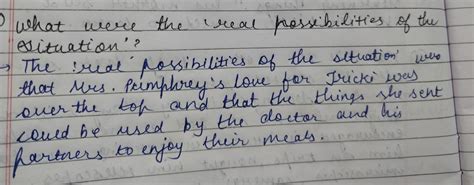 what were the 'real possibilities of the
situation'?
→ The 'real possibilities of the situation' were
that Mrs. Pumphrey's love for Tricki was
over the top and that the things she sent
could be used by the doctor and his
partners to enjoy their meals.